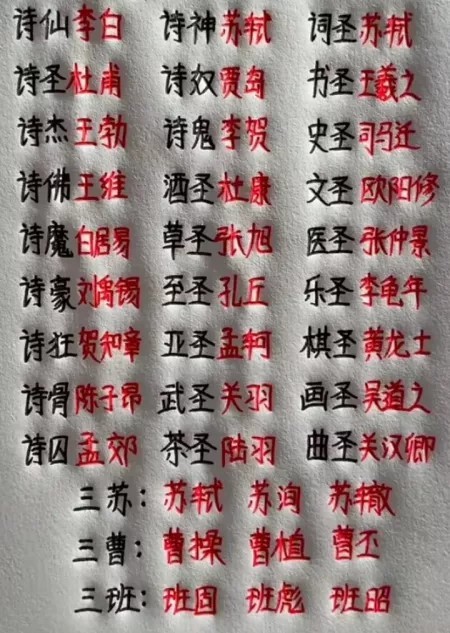 诗仙李白 诗神苏轼 词圣苏轼
诗圣杜甫 诗奴贾岛 书圣王羲之
诗杰王勃 诗鬼李贺 史圣司马迁
诗佛王维 酒圣杜康 文圣欧阳修
诗魔白居易 草圣张旭 医圣张仲景
诗豪刘禹锡 至圣孔丘 乐圣李龟年
诗狂贺知章 亚圣孟轲 棋圣黄龙士
诗骨陈子昂 武圣关羽 画圣吴道之
诗囚孟郊 茶圣陆羽 曲圣关汉卿
三苏：苏轼 苏洵 苏辙
三曹：曹操 曹植 曹丕
三班：班固 班彪 班昭